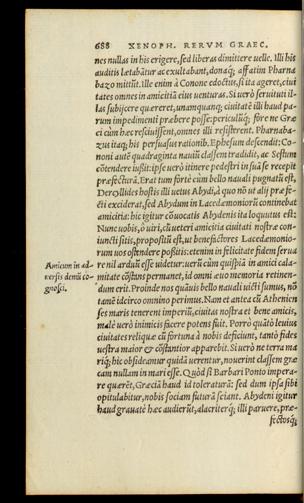 688 XENOPH. RERVM GRAEC.
nes nullas in his erigere, sed liberas dimittere uelle. Illi his
auditis lætabātur ac exultabant, donaq́; affatim Pharna
bazo mittūt. ille enim à Conone edoctus, si ita ageret, ciui
tates omnes in amicitiā eius uenturas. Si uerò seruituti il-
las subijcere quæreret, unamquanq; ciuitatē illi haud pa-
rum impedimenti præbere posse: periculūq́; fore ne Græ
ci cùm hæc resciuissent, omnes illi resisterent. Pharnaba-
zus itaq; his persuasus rationib. Ephesum descendit: Co-
noni autē quadraginta nauiū classem tradidit, ac Sestum
cōtendere iußit: ipse uerò itinere pedestri in suā se recepit
præfecturā. Erat tum fortè cùm bello nauali pugnatū est,
Dercyllides hostis illi uetus Abydi, à quo nō ut alij præfe-
cti exciderat, sed Abydum in Lacedæmoniorū continebat
amicitia: hic igitur cōuocatis Abydenis ita loquutus est:
Nunc uobis, ô uiri, cū ueteri amicitia ciuitati nostræ con-
iuncti sitis, propositū est, ut benefactores Lacedæmonio-
rum uos ostendere poßitis: etenim in felicitate fidem serua
re nil arduū esse uidetur: uerū cùm quispiā in amici cala-
mitate cōstans permanet, id omni æuo memoria retinen-
dum erit. Proinde nos quāuis bello nauali uicti sumus, nō
tamē idcirco omnino perimus. Nam et antea cū Athenien
ses maris tenerent imperiū, ciuitas nostra et bene amicis,
malè uerò inimicis facere potens fuit. Porrò quātò leuius
ciuitates reliquæ cū fortuna à nobis deficiunt, tantò fides
uestra maior & cōstantior apparebit. Si uerò ne terra ma
riq́; hic obsideamur quidā uerentur, nouerint classem græ
cam nullam in mari esse. Quòd si Barbari Ponto impera-
re quærēt, Græciā haud id toleraturā: sed dum ipsa sibi
opitulabitur, nobis sociam futurā sciant. Abydeni igitur
haud grauatè hæc audierūt, alacriterq́; illi paruere, præ-
fectosq́;
Amicum in ad-
uersis demū co-
gnosci.